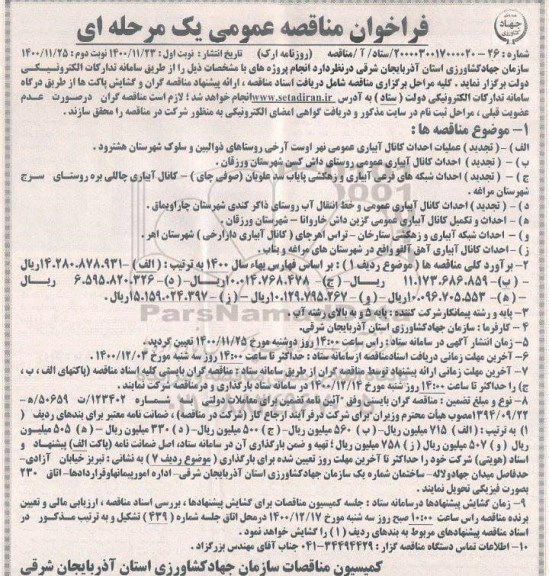 فراخوان مناقصه عمومی یک مرحله ای
جهاد
شماره : ۲۶ - ۲۰۰۰۰۳۰۰۱۷۰۰۰۰۲۰/ستاد/ آ /مناقصه (روزنامه ارک) تاریخ انتشار : نوبت اول : ۱۴۰۰/۱۱/۲۳ نوبت دوم : ۱۴۰۰/۱۱/۲۵
سازمان جهادکشاورزی استان آذربایجان شرقی درنظردارد انجام پروژه های با مشخصات ذیل را از طریق سامانه تدارکات الکترونیکی
دولت برگزار نماید . کلیه مراحل برگزاری مناقصه شامل دریافت اسناد مناقصه ، ارائه پیشنهاد مناقصه گران و گشایش پاکت ها از طریق درگاه
سامانه تدارکات الکترونیکی دولت ( ستاد ) به آدرس www.setadiran.ir انجام خواهد شد؛ لازم است مناقصه گران درصورت عدم
عضویت قبلی ، مراحل ثبت نام در سایت مذکور و دریافت گواهی امضای الکترونیکی به منظور شرکت در مناقصه را محقق سازند.
۱- موضوع مناقصه ها :
الف) - ( تجدید ) عملیات احداث کانال آبیاری عمومی نهر اوست آرخی روستاهای ذوالبین و سلوک شهرستان هشترود .
ب) - ( تجدید ) احداث کانال آبیاری عمومی روستای داش کسن شهرستان ورزقان.
ج) - ( تجدید ) احداث شبکه های فرعی آبیاری و زهکشی پایاب سد علویان (صوفی چای) - کانال آبیاری چاللی بره روستای سرج
شهرستان مراغه .
د) - ( تجدید ) احداث کانال آبیاری عمومی و خط انتقال آب روستای ذاکر کندی شهرستان چاراویماق .
ه) - احداث و تکمیل کانال آبیاری عمومی گزین داش خاروانا - شهرستان ورزقان .
و) - احداث شبکه آبیاری و زهکشی ستارخان - تراس اهرچای ( کانال آبیاری دازارخی ) شهرستان اهر .
ز) - احداث کانال آبیاری آهن آلقو واقع در شهرستان های مراغه و بناب .
۲- برآورد کلی مناقصه ها ( موضوع ردیف ۱ ) : بر اساس فهارس بهاء سال ۱۴۰۰ به ترتیب : (الف) - ۱۴.۲۸۰.۸۷۸.۹۳۱ ریال
- (ب) - ۱۱.۱۷۳.۶۸۶.۸۵۹ ریال - (ج) - ۱۰.۰۱۴.۷۶۸.۴۷۸ ریال - (د) - ۶.۵۹۵.۸۲۰.۳۲۶ ریال
- (ه) - ۱۰.۰۹۶.۷۰۵.۵۵۳ ریال - (و) - ۱۰.۱۲۹.۷۹۵.۲۶۷ ریال - (ز) - ۱۵.۱۵۹.۰۲۴.۳۹۷ ریال.
۳- پایه و رشته پیمانکار شرکت کننده : پایه ۵ و به بالای رشته آب .
۴- کارفرما : سازمان جهادکشاورزی استان آذربایجان شرقی.
۵- زمان انتشار آگهی در سامانه ستاد : راس ساعت ۱۴:۰۰ روز دوشنبه مورخ ۱۴۰۰/۱۱/۲۵ تعیین گردید.
۶- آخرین مهلت زمانی دریافت اسنادمناقصه ازسامانه ستاد : حداکثر تا ساعت ۱۴:۰۰ روز سه شنبه مورخ ۱۴۰۰/۱۲/۰۳.
۷- آخرین مهلت زمانی ارائه پیشنهاد توسط مناقصه گران از طریق سامانه ستاد : مناقصه گران بایستی کلیه اسناد مناقصه (پاکتهای الف ، ب ،
ج) را حداکثر تا ساعت ۱۴:۰۰ روز شنبه مورخ ۱۴۰۰/۱۲/۱۴ در سامانه ستاد بارگذاری و در مناقصه شرکت نمایند .
۸- نوع و مبلغ تضمین : مناقصه گران بایستی وفق "آیین نامه تضمین برای معاملات دولتی" به شماره ۱۲۳۴۰۲/ت ۵۰۶۵۹ ه -
۱۳۹۴/۰۹/۲۲ مصوب هیأت محترم وزیران برای شرکت درفرآیند ارجاع کار (شرکت در مناقصه) ، ضمانت نامه معتبر برای بندهای ردیف (
۱) به ترتیب : ( الف) ۷۱۵ میلیون ریال- (ب) ۵۶۰ میلیون ریال - (ج) ۵۰۰ میلیون ریال - (د) ۳۳۰ میلیون ریال - (ه) ۵۰۵ میلیون
ریال (و) ۵۰۷ میلیون ریال (ز) ۷۵۸ میلیون ریال ؛ تهیه و ضمن بارگذاری آن در سامانه ستاد، اصل ضمانت نامه (پاکت الف) پیشنهاد و
اسناد (هویتی) شرکت خود را حداکثر تا آخرین مهلت روز تعیین شده برای بارگذاری ( موضوع ردیف ۷ ) به نشانی : تبریز خیابان آزادی-
حدفاصل میدان جهادولاله- ساختمان شماره یک سازمان جهادکشاورزی استان آذربایجان شرقی- اداره امورپیمانهاوقراردادها- اتاق ۲۳۰
بصورت فیزیکی تحویل نمایند .
۹- زمان گشایش پیشنهادها درسامانه ستاد : جلسه کمیسیون مناقصات برای گشایش پیشنهادها ، بررسی اسناد مناقصه ، ارزیابی مالی و تعیین
برنده مناقصه راس ساعت ۱۰:۰۰ صبح روز سه شنبه مورخ ۱۴۰۰/۱۲/۱۷ درمحل اتاق جلسه شماره ( ۴۳۹ ) تشکیل و به ترتیب مذکور در
اسناد مناقصه پیشنهادهای مربوط به بندهای ردیف ( ۱ ) را گشایش خواهد نمود .
۱۰- اطلاعات تماس دستگاه مناقصه گزار : ۳۴۴۹۴۴۲۹-۰۴۱ جناب آقای مهندس بزرگزاد .
کمیسیون مناقصات سازمان جهادکشاورزی استان آذربایجان شرقی